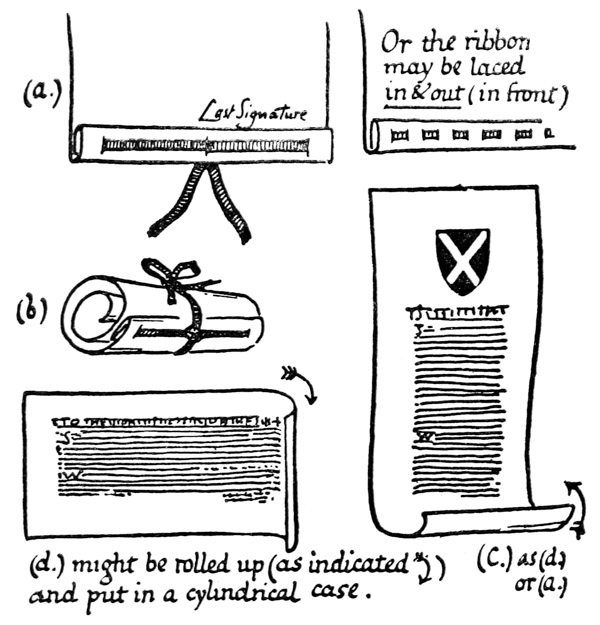 (a.)
Last Signature
Or the ribbon
may be laced
in & out (in front)
(b)
S—
W
S—
W
(d.) might be rolled up (as indicated )
and put in a cylindrical case.
(C.) as (d.)
or (a.)